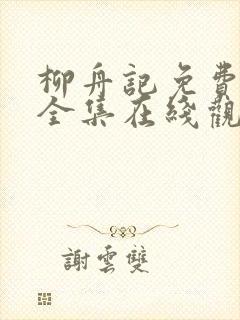 柳舟記免費
全集在綫觀
謝雲雙